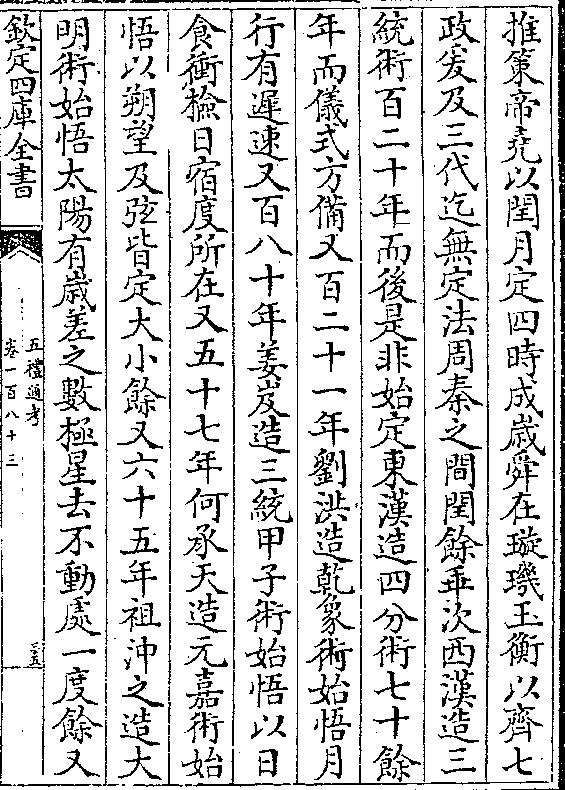 推策帝堯以閏月定四時成歲舜在璇璣玉衡以齊七
政爰及三代迄無定法周秦之間閏餘乖次西漢造三
統術百二十年而後是非始定東漢造四分術七十餘
年而儀式方備又百二十一年劉洪造乾象術始悟月
行有遲速又百八十年姜岌造三統甲子術始悟以日
食衝檢日宿度所在又五十七年何承天造元嘉術始
悟以朔望及弦皆定大小餘又六十五年祖沖之造大
明術始悟太陽有歲差之數極星去不動處一度餘又
欽定四庫全書
五禮通考
卷一百八十三
三五